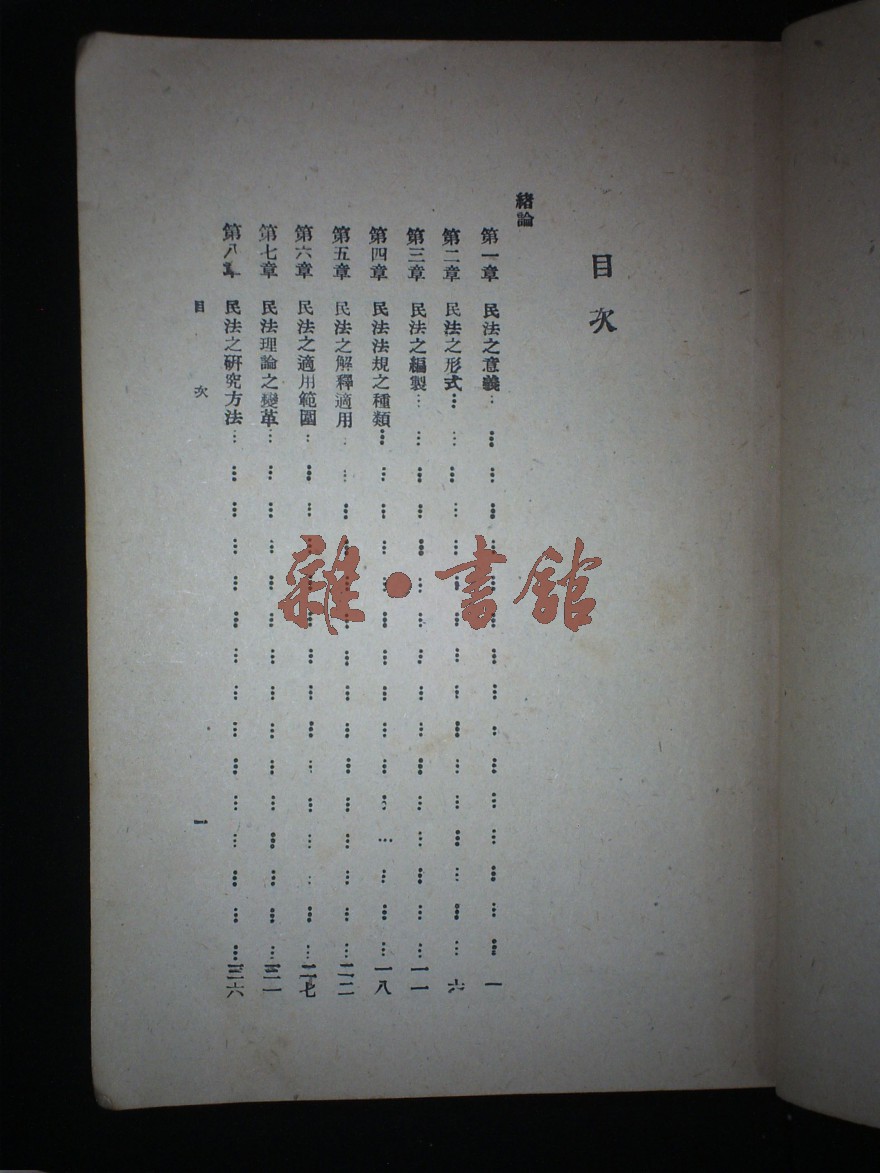 目次
緒論
第一章 民法之意義………一
第二章 民法之形式………六
第三章 民法之編製………一一
第四章 民法法規之種類………一八
第五章 民法之解釋適用………二二
第六章 民法之適用範圍………二七
第七章 民法理論之變革………三一
第八章 民法之研究方法………三六
目次 一
雜·書館